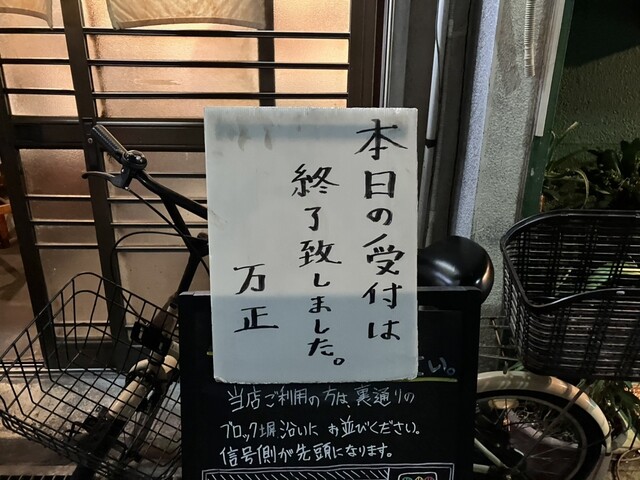 本日の受付は
終了致しました。
万正
い。
当店ご利用の方は裏通りの
ブロック塀沿いにお並びください。
信号側が先頭になります。